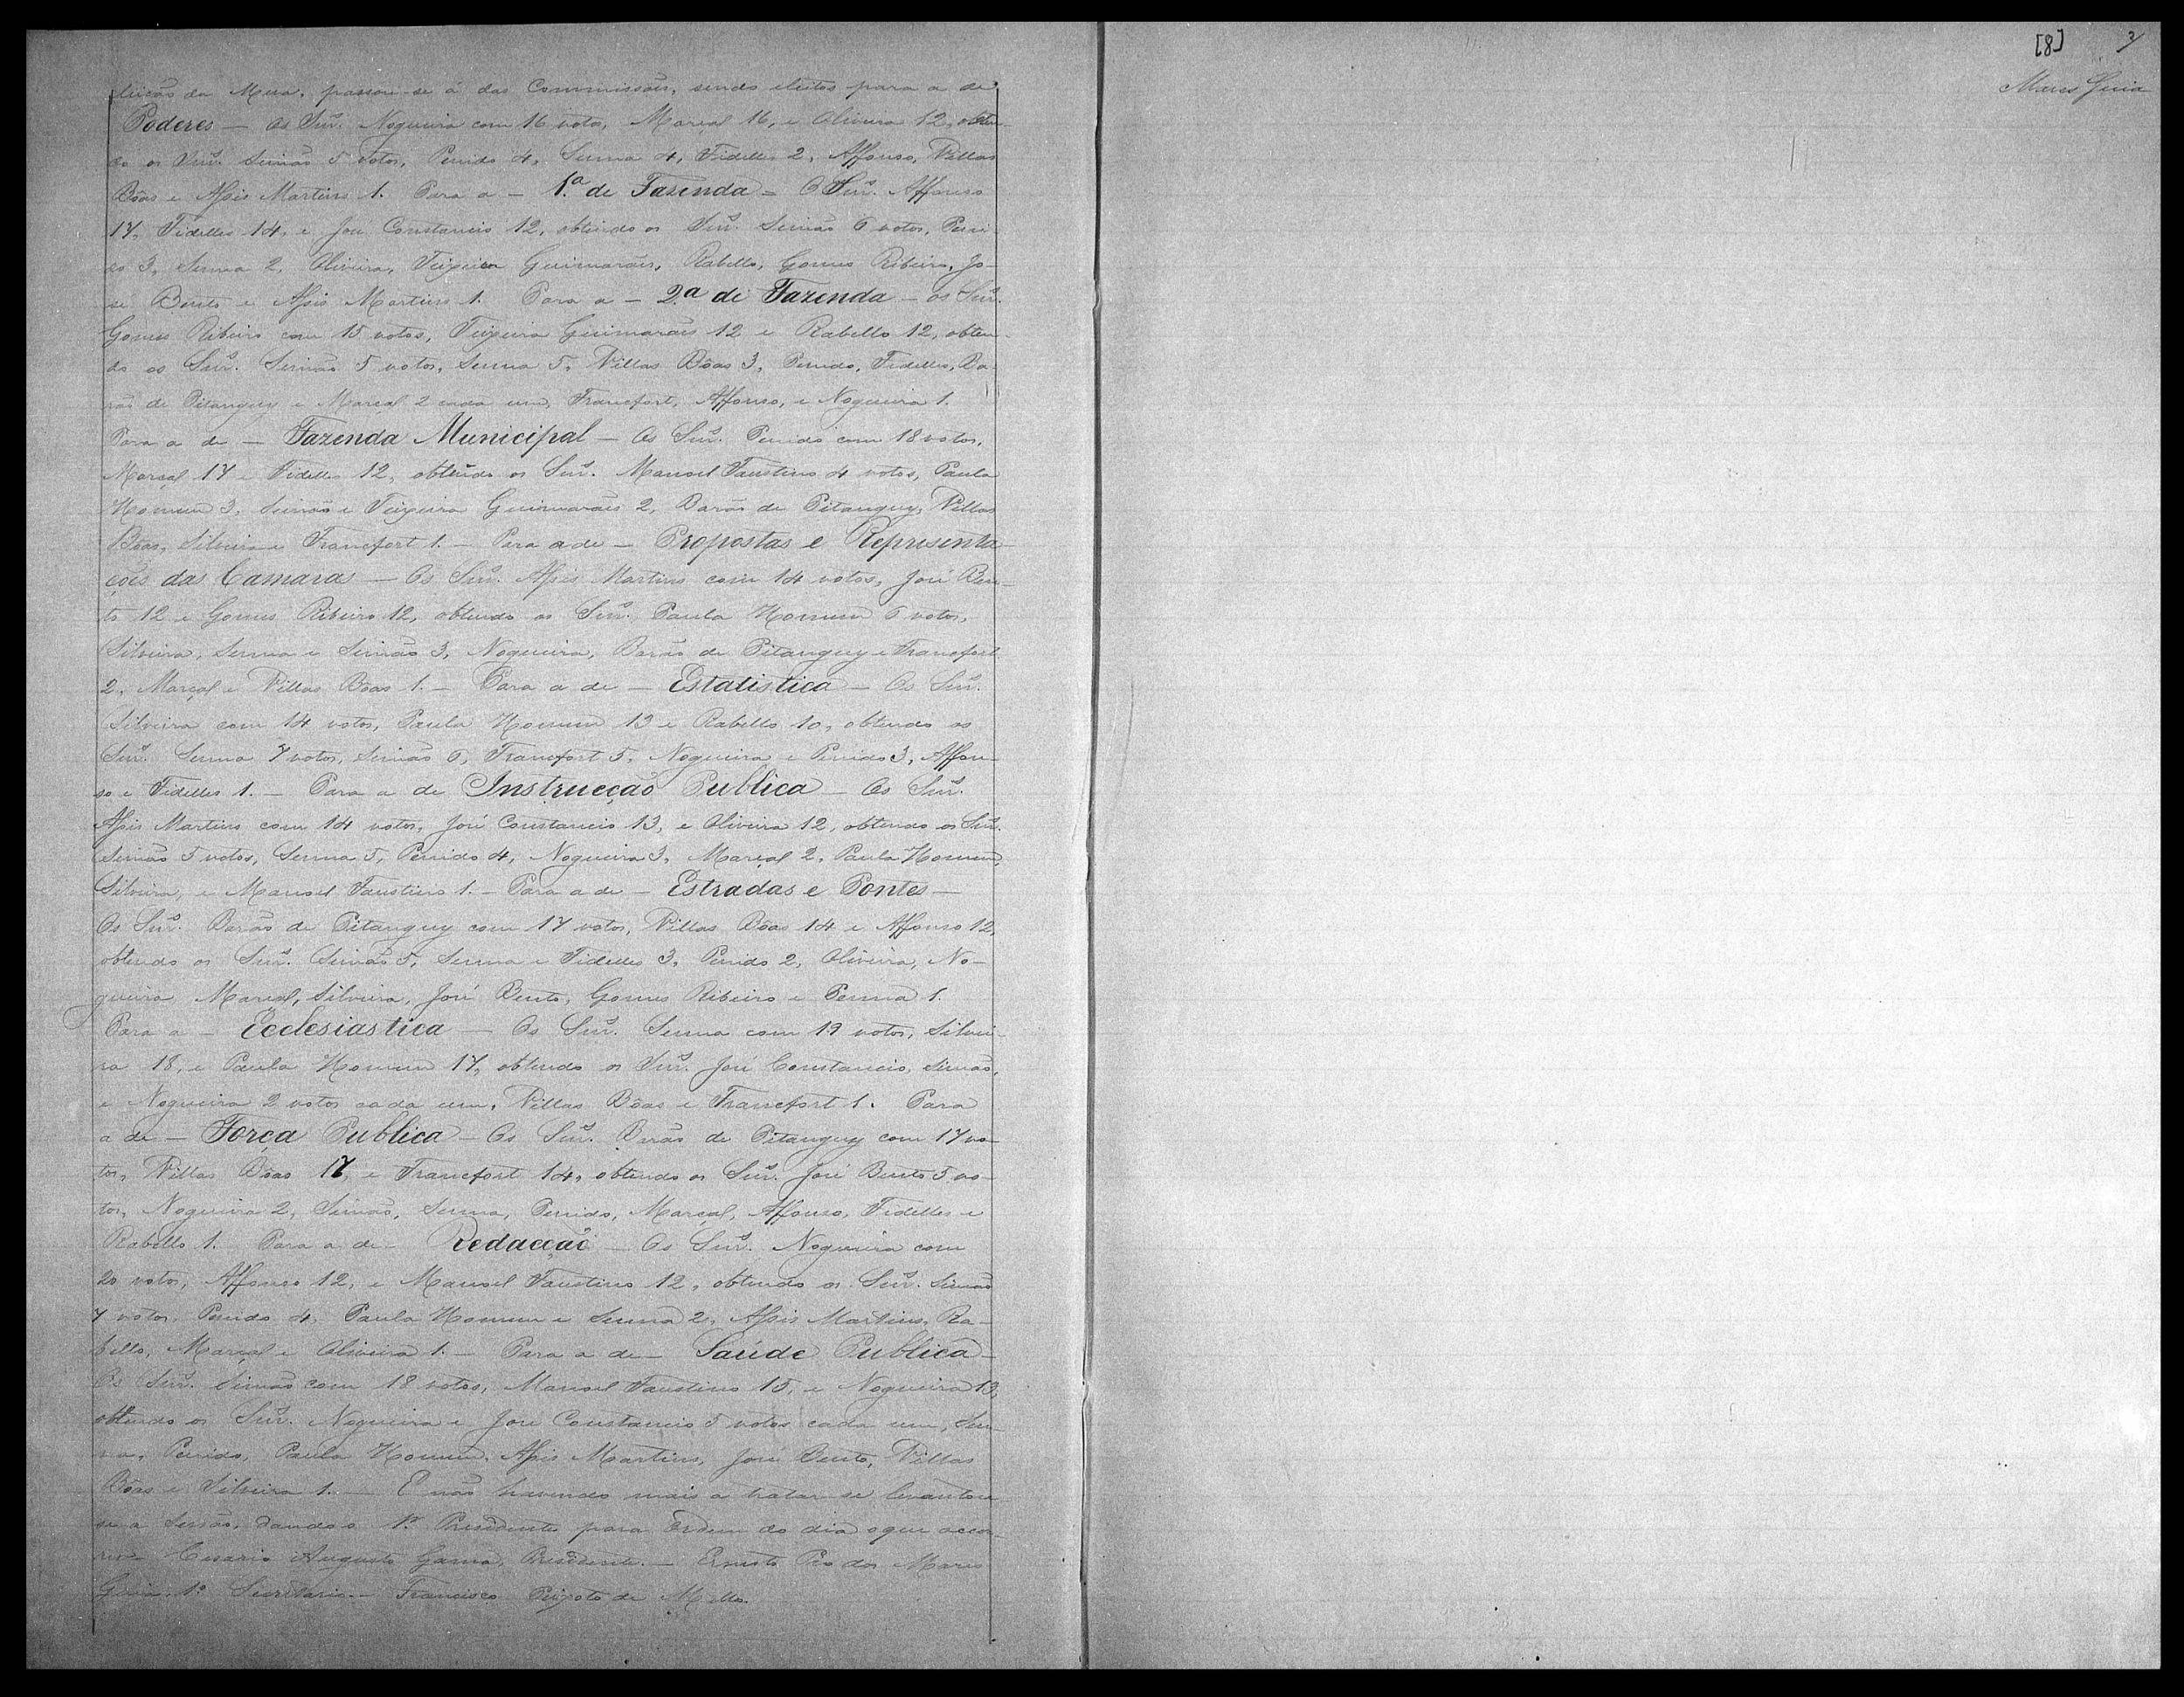 leição da Mesa, passou-se á das Commissões, sendo eleitos para a de
Poderes — Os Snrs. Nogueira com 16 votos, Marçal 16, e Oliveira 12, obten-
do os Snrs. Simão 5 votos, Penido 4, Senna 4, Fidelles 2, Affonso, Villas
Bôas e Assis Martins 1. Para a — 1.ª de Fazenda — O Snrs. Affonso
17, Fidelles 14, e José Constancio 12, obtendo os Snrs. Simão 6 votos, Peni-
do 3, Senna 2, Oliveira, Teixeira Guimarães, Rabello, Gomes Ribeiro, Jo-
sé Bento e Assis Martins 1. Para a — 2.ª de Fazenda — os Snrs.
Gomes Ribeiro com 15 votos, Teixeira Guimarães 12 e Rabello 12, obten-
do os Snrs. Simão 5 votos, Senna 5, Villas Bôas 3, Penido, Fidelles, Ba-
rão de Pitanguy e Marçal 2 cada um, Francfort, Affonso, e Nogueira 1.
Para a de — Fazenda Municipal — Os Snrs. Penido com 18 votos,
Marçal 17 e Fidelles 12, obtendo os Snrs. Manoel Faustino 4 votos, Paula
Homem 3, Simão e Teixeira Guimarães 2, Barão de Pitanguy, Villas
Bôas, Silveira e Francfort 1. — Para a de — Propostas e Representa-
ções das Camaras — Os Snrs. Assis Martins com 14 votos, José Ben-
to 12 e Gomes Ribeiro 12, obtendo os Snrs. Paula Homem 6 votos,
Silveira, Senna e Simão 3, Nogueira, Barão de Pitanguy e Francfort
2, Marçal e Villas Bôas 1. — Para a de — Estatistica — Os Snrs.
Silveira com 14 votos, Paula Homem 13 e Rabello 10, obtendo os
Snrs. Senna 7 votos, Simão 6, Francfort 5, Nogueira e Penido 3, Affon-
so e Fidelles 1. — Para a de Instrucção Publica — Os Snrs.
Assis Martins com 14 votos, José Constancio 13, e Oliveira 12, obtendo os Snrs.
Simão 5 votos, Senna 5, Penido 4, Nogueira 3, Marçal 2, Paula Homem,
Silveira, e Manoel Faustino 1. — Para a de — Estradas e Pontes —
Os Snrs. Barão de Pitanguy com 17 votos, Villas Bôas 14 e Affonso 12,
obtendo os Snrs. Simão 5, Senna e Fidelles 3, Penido 2, Oliveira, No-
gueira, Marçal, Silveira, José Bento, Gomes Ribeiro e Penna 1.
Para a — Ecclesiastica — Os Snrs. Senna com 19 votos, Silvei-
ra 18, e Paula Homem 17, obtendo os Snrs. José Constancio, Simão,
e Nogueira 2 votos cada um, Villas Bôas e Francfort 1. Para
a de — Força Publica — Os Snrs. Barão de Pitanguy com 17 vo-
tos, Villas Bôas 17, e Francfort 14, obtendo os Snrs. José Bento 5 vo-
tos, Nogueira 2, Simão, Senna, Penido, Marçal, Affonso, Fidelles e
Rabello 1. Para a de — Redacção — Os Snrs. Nogueira com
20 votos, Affonso 12, e Manoel Faustino 12, obtendo os Snrs. Simão
7 votos, Penido 4, Paula Homem e Senna 2, Assis Martins, Ra-
bello, Marçal e Oliveira 1. — Para a de — Saúde Publica —
Os Snrs. Simão com 18 votos, Manoel Faustino 15, e Nogueira 13,
obtendo os Snrs. Nogueira e José Constancio 5 votos cada um, Sen-
na, Penido, Paula Homem, Assis Martins, José Bento, Villas
Bôas e Silveira 1. — E não havendo mais a tratar-se levantou-
se a Sessão, dando o Presidente para ordem do dia o que
Cesario Augusto Gama, Presidente. — Ernesto Pio dos Mares
Guia, 1º Secretario. — Francisco Peixoto de Mello.
[8]
Mares Guia